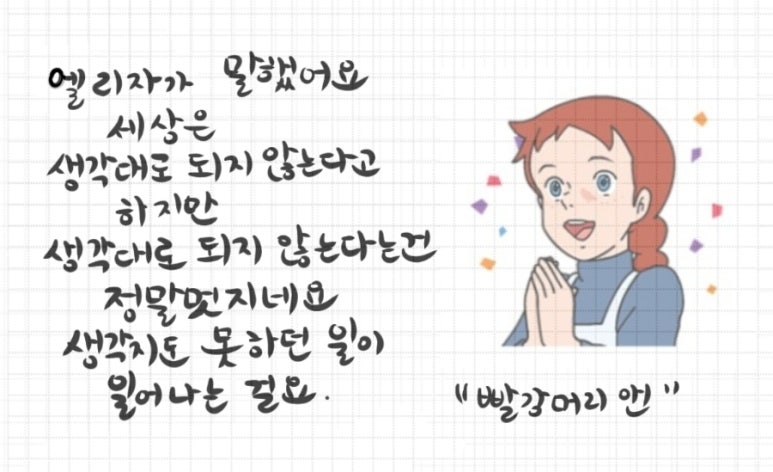 엘리자가 말했어요
세상은
생각대로 되지 않는다고
하지만
생각대로 되지 않는다는건
정말멋지네요
생각지도 못하던 일이
일어나는 걸요.
"빨강머리 앤"